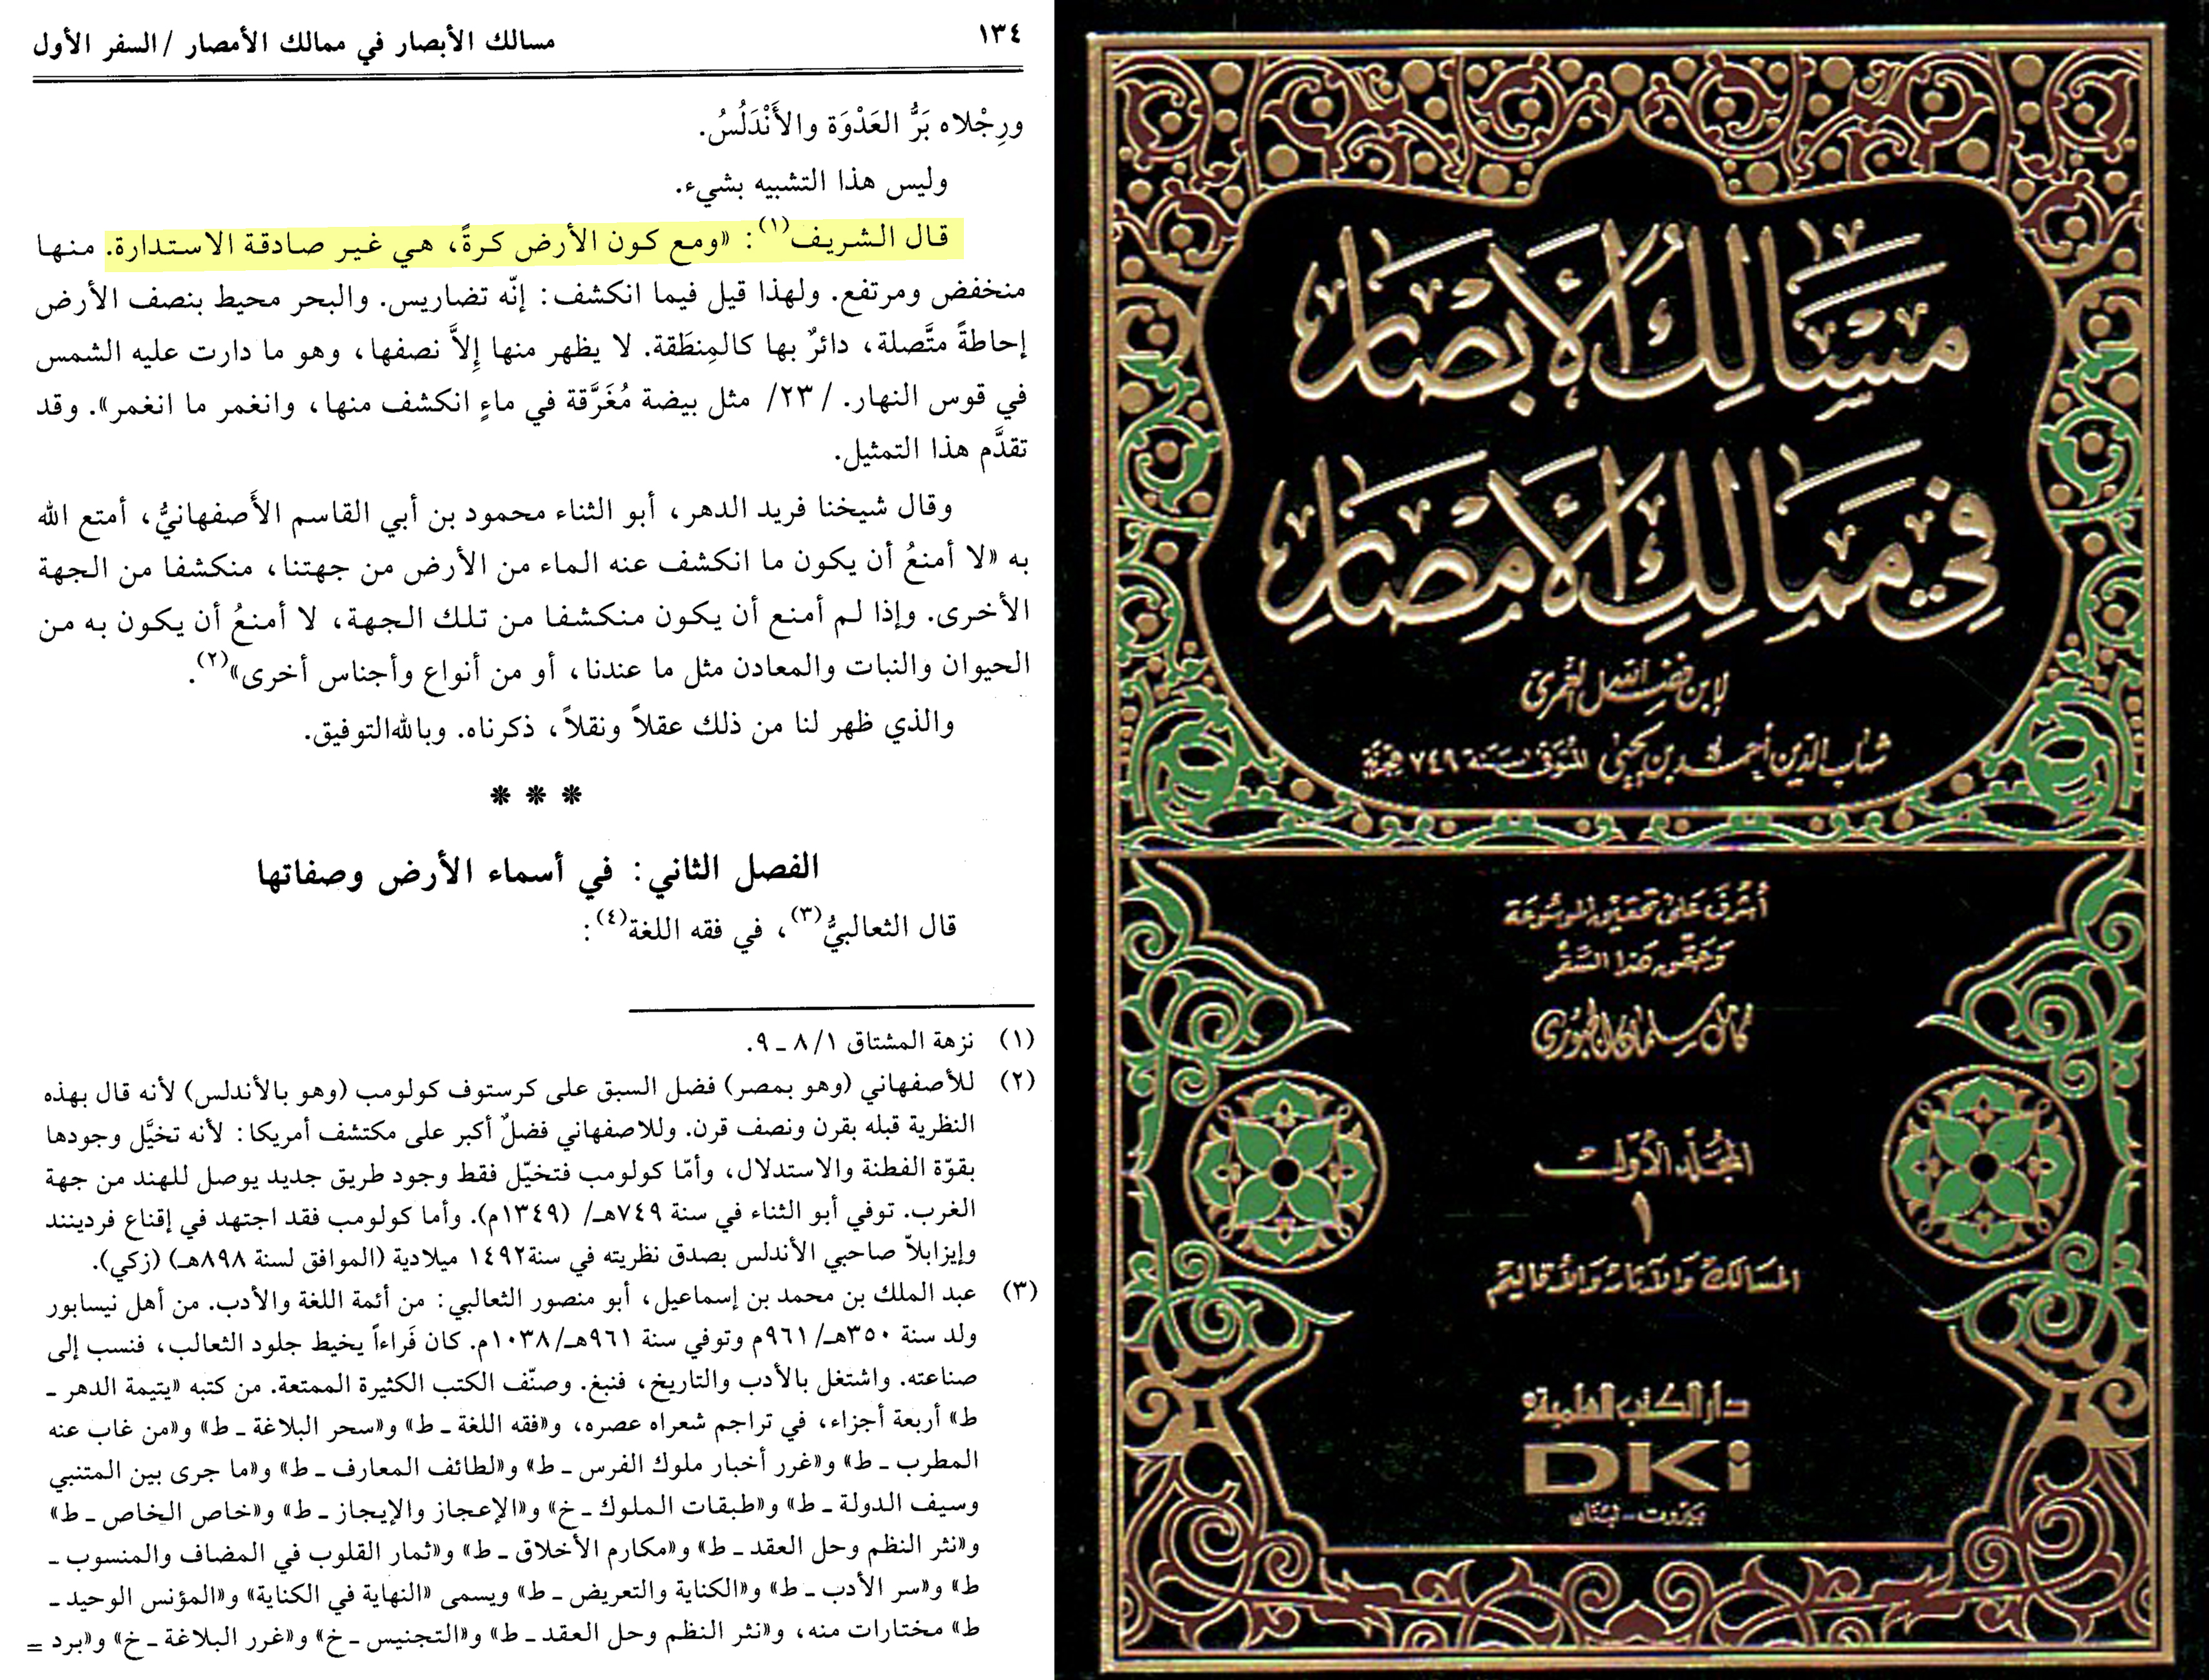 ١٣٤
مسالك الأبصار في ممالك الأمصار / السفر الأول
ورِجْلاه بَرُّ العَدْوَة والأَنْدَلُسُ.
وليس هذا التشبيه بشيء.
قال الشريف(١): «ومع كون الأرض كرةً، هي غير صادقة الاستدارة. منها
منخفض ومرتفع. ولهذا قيل فيما انكشف: إنّه تضاريس. والبحر محيط بنصف الأرض
إحاطةً متَّصلة، دائرٌ بها كالمِنطَقة. لا يظهر منها إِلاَّ نصفها، وهو ما دارت عليه الشمس
في قوس النهار. /٢٣/ مثل بيضة مُغَرَّقة في ماءٍ انكشف منها، وانغمر ما انغمر». وقد
تقدَّم هذا التمثيل.
وقال شيخنا فريد الدهر، أبو الثناء محمود بن أبي القاسم الأَصفهانيُّ، أمتع الله
به «لا أمنعُ أن يكون ما انكشف عنه الماء من الأرض من جهتنا، منكشفا من الجهة
الأخرى. وإذا لم أمنع أن يكون منكشفا من تلك الجهة، لا أمنعُ أن يكون به من
الحيوان والنبات والمعادن مثل ما عندنا، أو من أنواع وأجناس أخرى»(٢).
والذي ظهر لنا من ذلك عقلاً ونقلاً، ذكرناه. وبالله التوفيق.
* * *
الفصل الثاني: في أسماء الأرض وصفاتها
قال الثعالبيُّ(٣)، في فقه اللغة(٤):
(١) نزهة المشتاق ١/ ٨ ـ ٩.
(٢) للأصفهاني (وهو بمصر) فضل السبق على كرستوف كولومب (وهو بالأندلس) لأنه قال بهذه
النظرية قبله بقرن ونصف قرن. وللاصفهاني فضلٌ أكبر على مكتشف أمريكا: لأنه تخيَّل وجودها
بقوّة الفطنة والاستدلال، وأمّا كولومب فتخيّل فقط وجود طريق جديد يوصل للهند من جهة
الغرب. توفي أبو الثناء في سنة ٧٤٩هـ/ (١٣٤٩م). وأما كولومب فقد اجتهد في إقناع فردينند
وإيزابلاّ صاحبي الأندلس بصدق نظريته في سنة ١٤٩٢ ميلادية (الموافق لسنة ٨٩٨هـ) (زكي).
(٣) عبد الملك بن محمد بن إسماعيل، أبو منصور الثعالبي: من أئمة اللغة والأدب. من أهل نيسابور
ولد سنة ٣٥٠هـ/ ٩٦١م وتوفي سنة ٩٦١هـ/ ١٠٣٨م. كان فَراءاً يخيط جلود الثعالب، فنسب إلى
صناعته. واشتغل بالأدب والتاريخ، فنبغ. وصنّف الكتب الكثيرة الممتعة. من كتبه «يتيمة الدهر ـ
ط» أربعة أجزاء، في تراجم شعراه عصره، و«فقه اللغة ـ ط» و«سحر البلاغة ـ ط» و«من غاب عنه
المطرب ـ ط» و«غرر أخبار ملوك الفرس ـ ط» و«لطائف المعارف ـ ط» و«ما جرى بين المتنبي
وسيف الدولة ـ ط» و«طبقات الملوك ـ خ» و«الإعجاز والإيجاز ـ ط» و«خاص الخاص ـ ط»
و«نثر النظم وحل العقد ـ ط» و«مكارم الأخلاق ـ ط» و«ثمار القلوب في المضاف والمنسوب ـ
ط» و«سر الأدب ـ ط» و«الكناية والتعريض ـ ط» ويسمى «النهاية في الكناية» و«المؤنس الوحيد ـ
ط» مختارات منه، و«نثر النظم وحل العقد ـ ط» و«التجنيس ـ خ» و«غرر البلاغة ـ خ» و«برد =
مسالك الأبصار
في ممالك الأمصار
لابن فضل الله العمري
شهاب الدين أحمد بن يحيى المتوفى سنة ٧٤٩ هجرية
أشرف على تحقيق الموسوعة
وحقق هذا السفر
كامل سلمان الجبوري
المجلد الأول
١
المسالك والآثار والأقاليم
دار الكتب العلمية
DKi
بيروت - لبنان